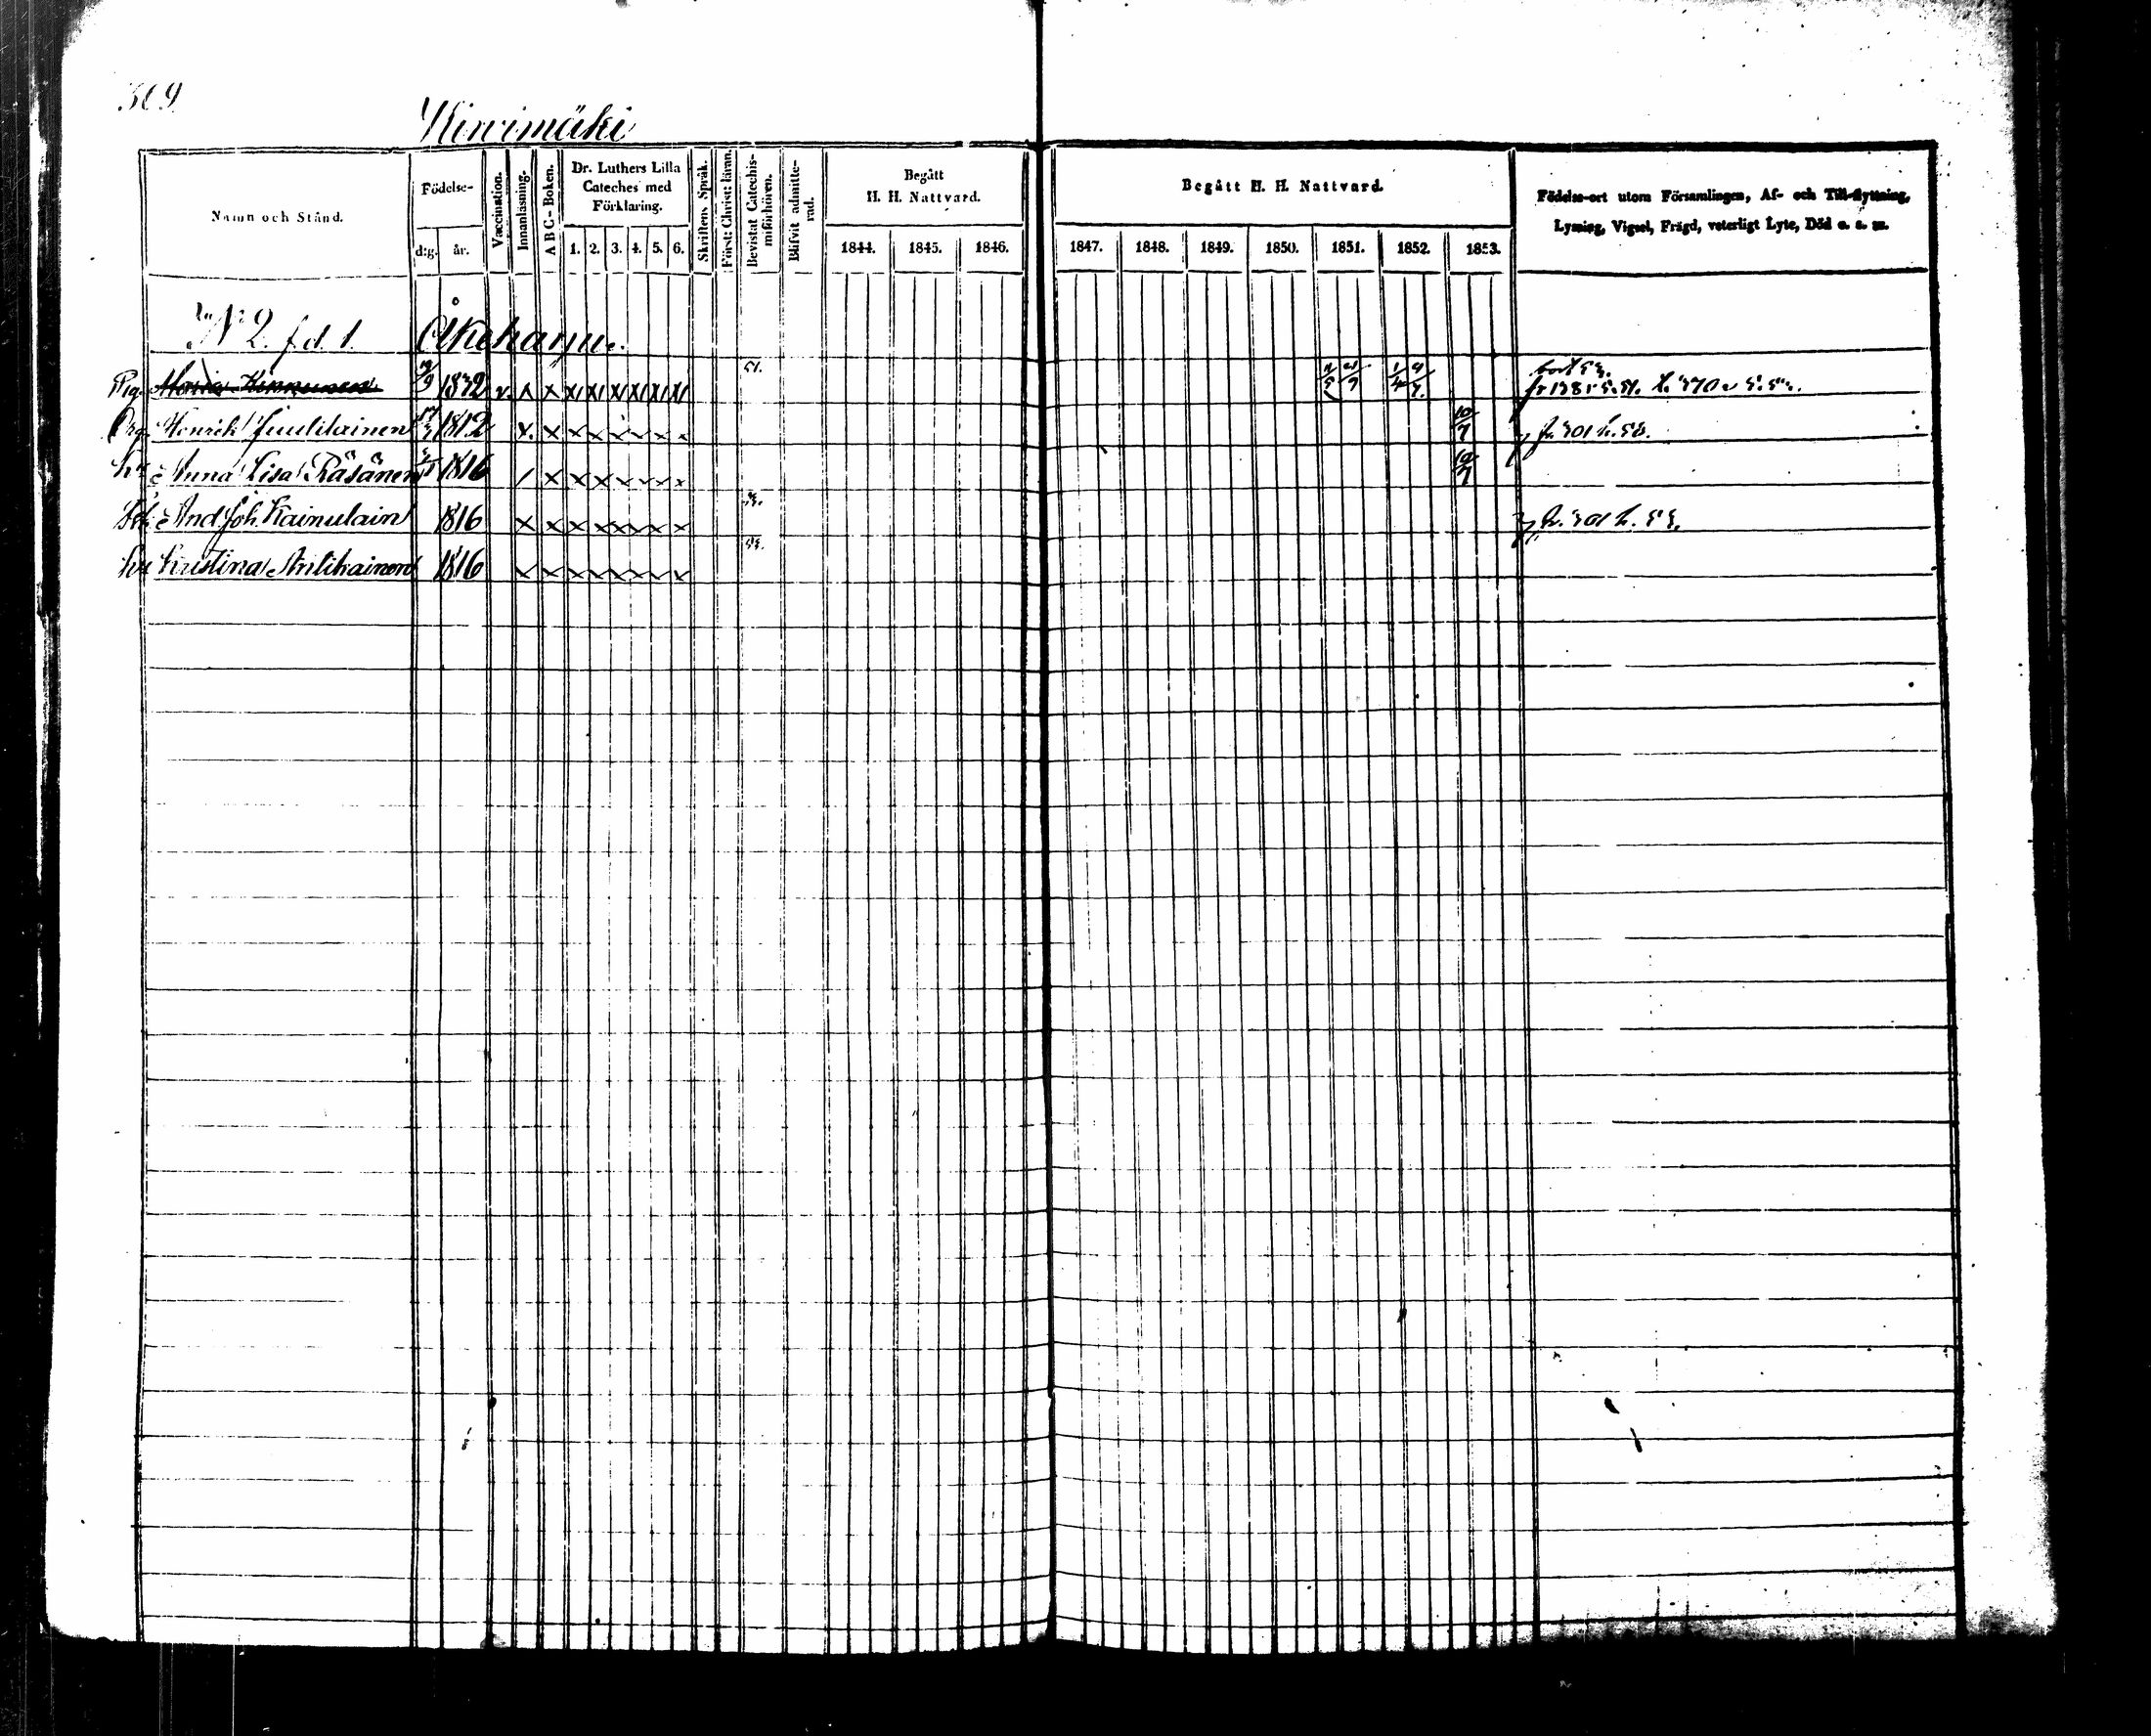 309.
Kinnimäki
Namn och Stånd.
Födelse-
d:g. år.
Vaccination.
Innanläsning.
A B C-Boken.
Dr. Luthers Lilla Cateches med Förklaring.
1. 2. 3. 4. 5. 6.
Skriftens Språk.
Först: Christ: läran.
Bevistat Catechis-misförhören.
Blifvit admitte-rad.
Begått H. H. Nattvard.
1844. 1845. 1846.
Begått H. H. Nattvard.
1847. 1848. 1849. 1850. 1851. 1852. 1853.
Födelse-ort utom Församlingen, Af- och Till-flyttning,
Lysning, Vigsel, Frägd, veterligt Lyte, Död o. s. m.
N 2. f.d. 1. Åkeharju.
Pig. Maria Kinnunen 1832 v. x x x x x x x x 51.
bort 53.
Drg. Henrik Juulilainen 1812 x. x x x x x x x 10/7
hu Anna Lisa Räsänen 1816 / x x x x x x x 10/7
And. Joh. Kainulain 1816 x x x x x x x x
hu Kristina Antikainen 1816 x x x x x x x x